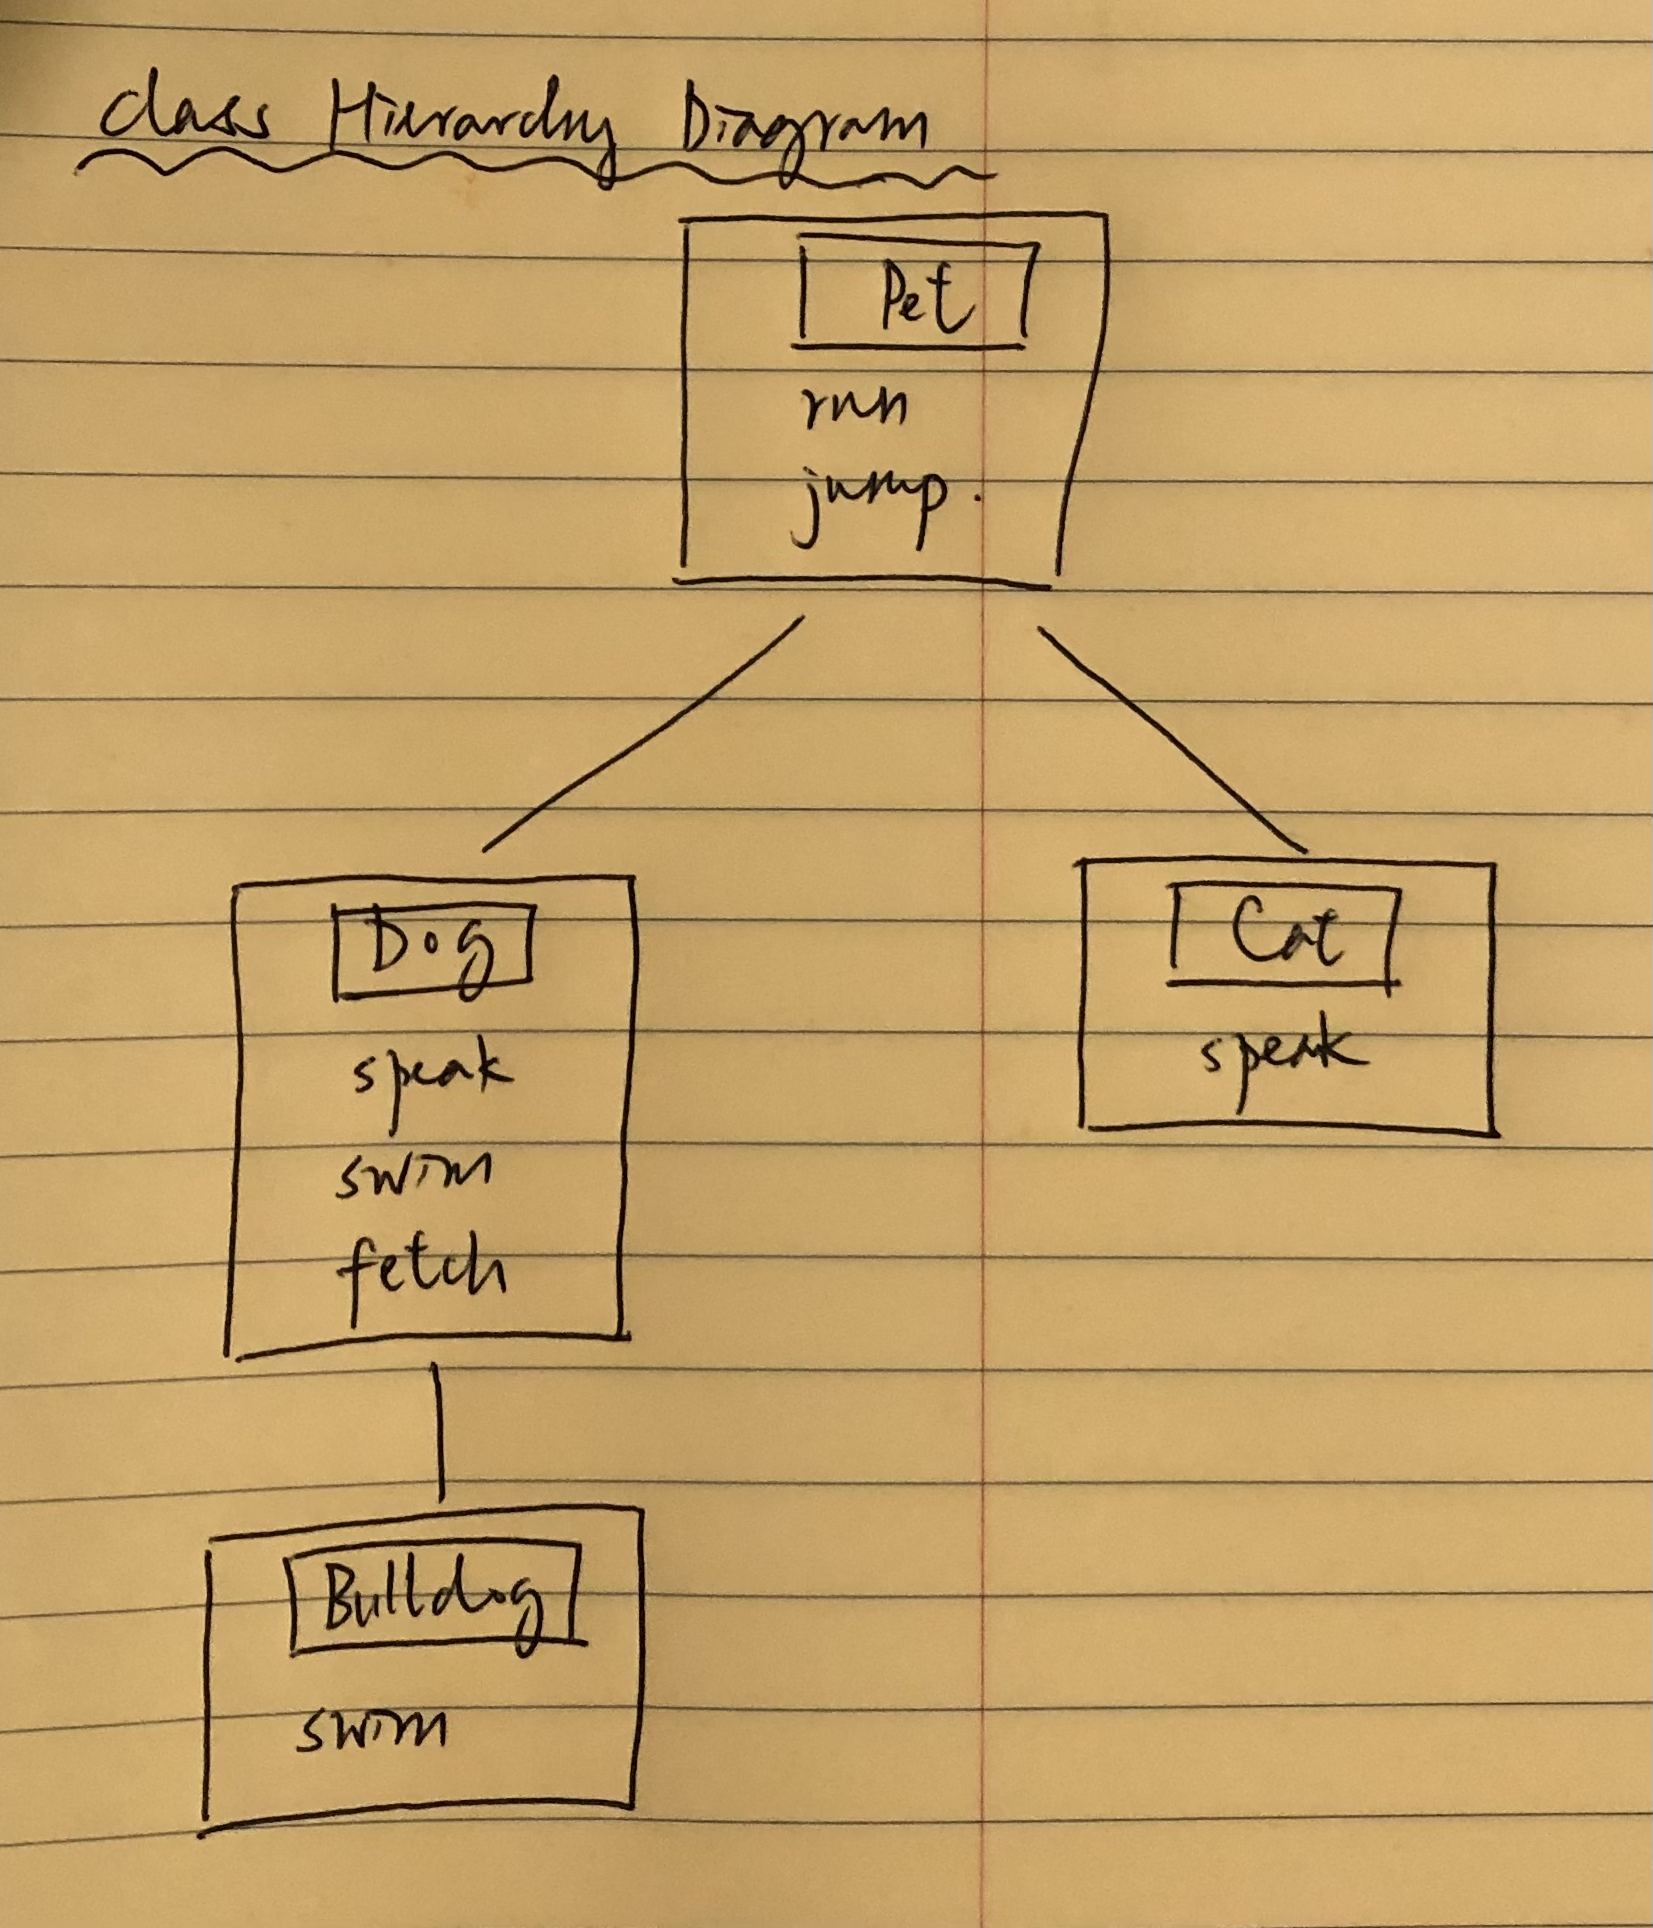 Class Hierarchy Diagram
Pet
run
jump.
Dog
speak
swim
fetch
Cat
speak
Bulldog
swim